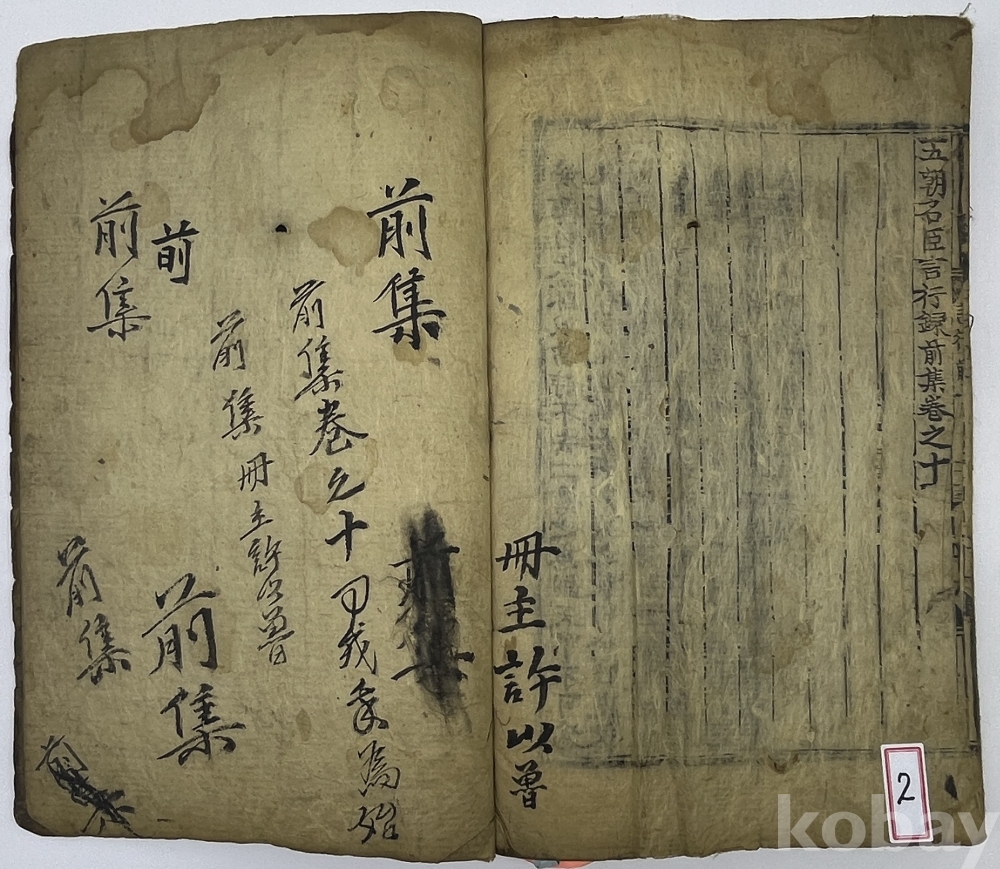 五朝名臣言行録前集卷之十
冊主許以曾
前集
前集卷之十
為始
前集冊主許以曾
前
前集
前集
前集
2
kobay